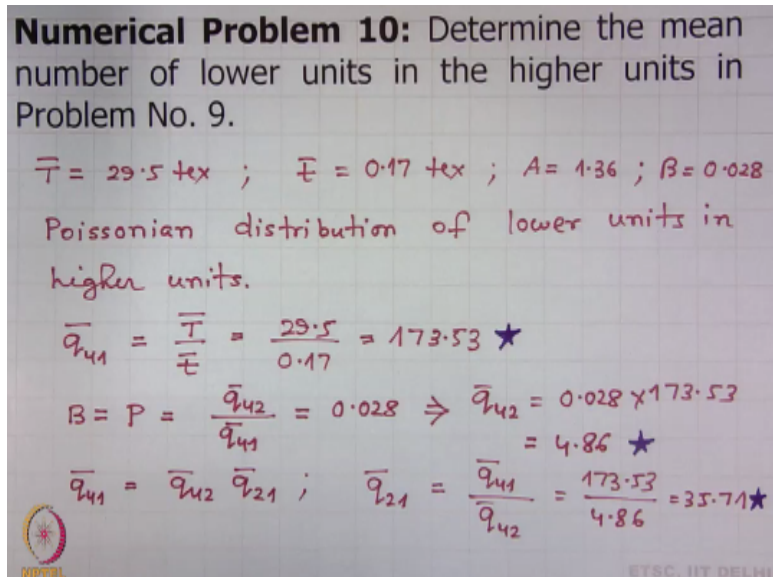 Numerical Problem 10: Determine the mean
number of lower units in the higher units in
Problem No. 9.
T̅ = 29.5 tex ; t̅ = 0.17 tex ; A = 1.36 ; B = 0.028
Poissonian distribution of lower units in
higher units.
q̅41 = T̅/t̅ = 29.5/0.17 = 173.53 ★
B = P = q̅42/q̅41 = 0.028 ⇒ q̅42 = 0.028 × 173.53
= 4.86 ★
q̅41 = q̅42 q̅21 ; q̅21 = q̅41/q̅42 = 173.53/4.86 = 35.71★
NPTEL
ETSC, IIT DELHI